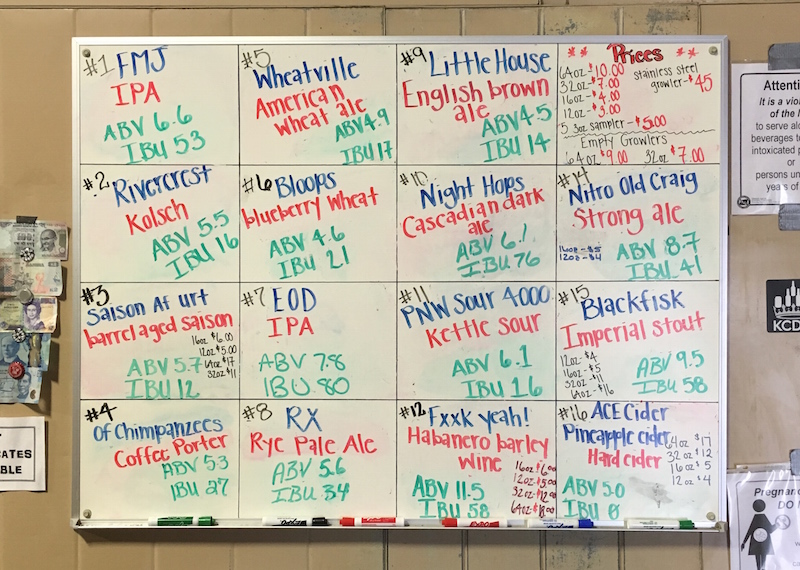 #1 FMJ
IPA
ABV 6.6
IBU 53
#5
Wheatville
American
wheat ale
ABV 4.9
IBU 17
#9 Little House
English brown
ale
ABV 4.5
IBU 14
** Prices **
64oz-$10.00
32oz-$7.00
16oz-$4.00
12oz-$3.00
stainless steel
growler-$45
5 3oz sampler-$5.00
Empty Growlers
64oz $9.00 32oz $7.00
#2 Rivercrest
Kolsch
ABV 5.5
IBU 16
#6 Bloops
blueberry wheat
ABV 4.6
IBU 21
#10
Night Hops
Cascadian dark
ale
ABV 6.1
IBU 76
#14
Nitro Old Craig
Strong ale
16oz-$5
12oz-$4
ABV 8.7
IBU 41
#3
Saison Af urt
barrel aged saison
16oz $6.00
12oz $5.00
64oz $17
32oz $11
ABV 5.7
IBU 12
#7 EOD
IPA
ABV 7.8
IBU 80
#11
PNW Sour 4000
Kettle Sour
ABV 6.1
IBU 16
#15
Blackfisk
Imperial stout
12oz-$4
16oz-$5
32oz-$11
64oz-$16
ABV 9.5
IBU 58
#4
Of Chimpanzees
Coffee Porter
ABV 5.3
IBU 27
#8 RX
Rye Pale Ale
ABV 5.6
IBU 34
#12 Fxxk yeah!
Habanero barley
wine
16oz $6.00
12oz $5.00
32oz $12.00
64oz $18.00
ABV 11.5
IBU 58
#16 ACE Cider
Pineapple cider
Hard cider
64oz $17
32oz $12
16oz $5
12oz $4
ABV 5.0
IBU 0
EXPO
Attenti
It is a vio
of the
to serve alc
beverages t
intoxicated p
or
persons un
years of
KCD
Pregnan
DO
CATES
BLE